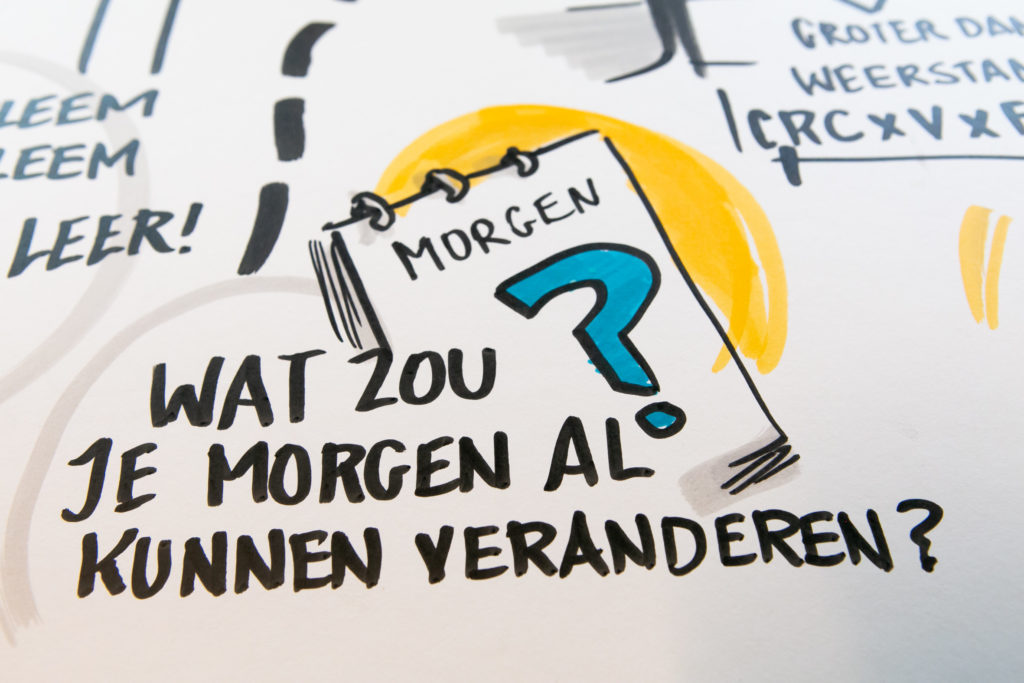 GROTER DAN
WEERSTAN
CRC x V x E
LEEM
LEEM
LEER!
MORGEN
?
WAT ZOU
JE MORGEN AL
KUNNEN VERANDEREN?